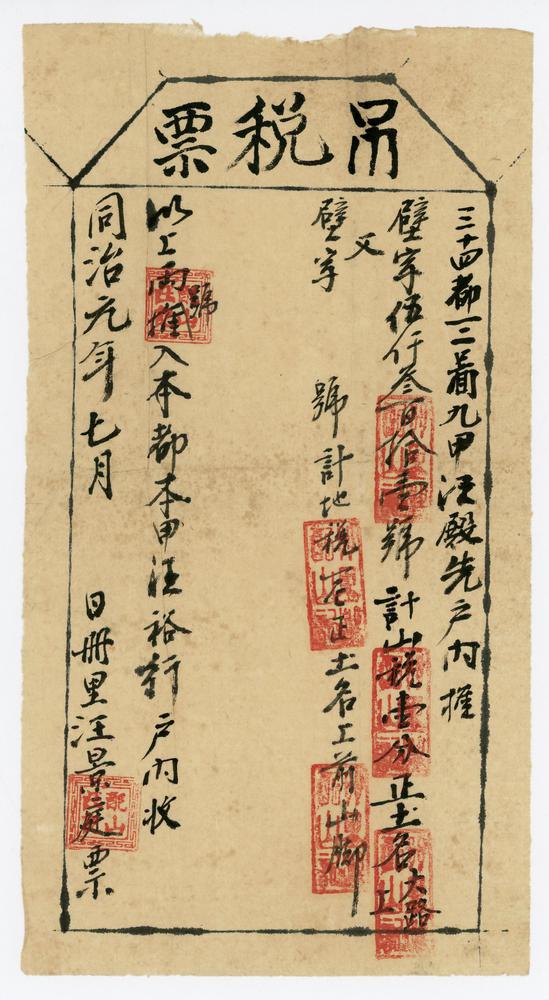 吊稅票
三十四都一二啚九甲汪殿先户内推
壁字伍仟叁百拾壹號計山稅壹分正土名大路上
又
壁字 號計地稅正土名上前山腳
以上兩號推入本都本甲汪裕行户内收
同治元年七月 日冊里汪景庭票